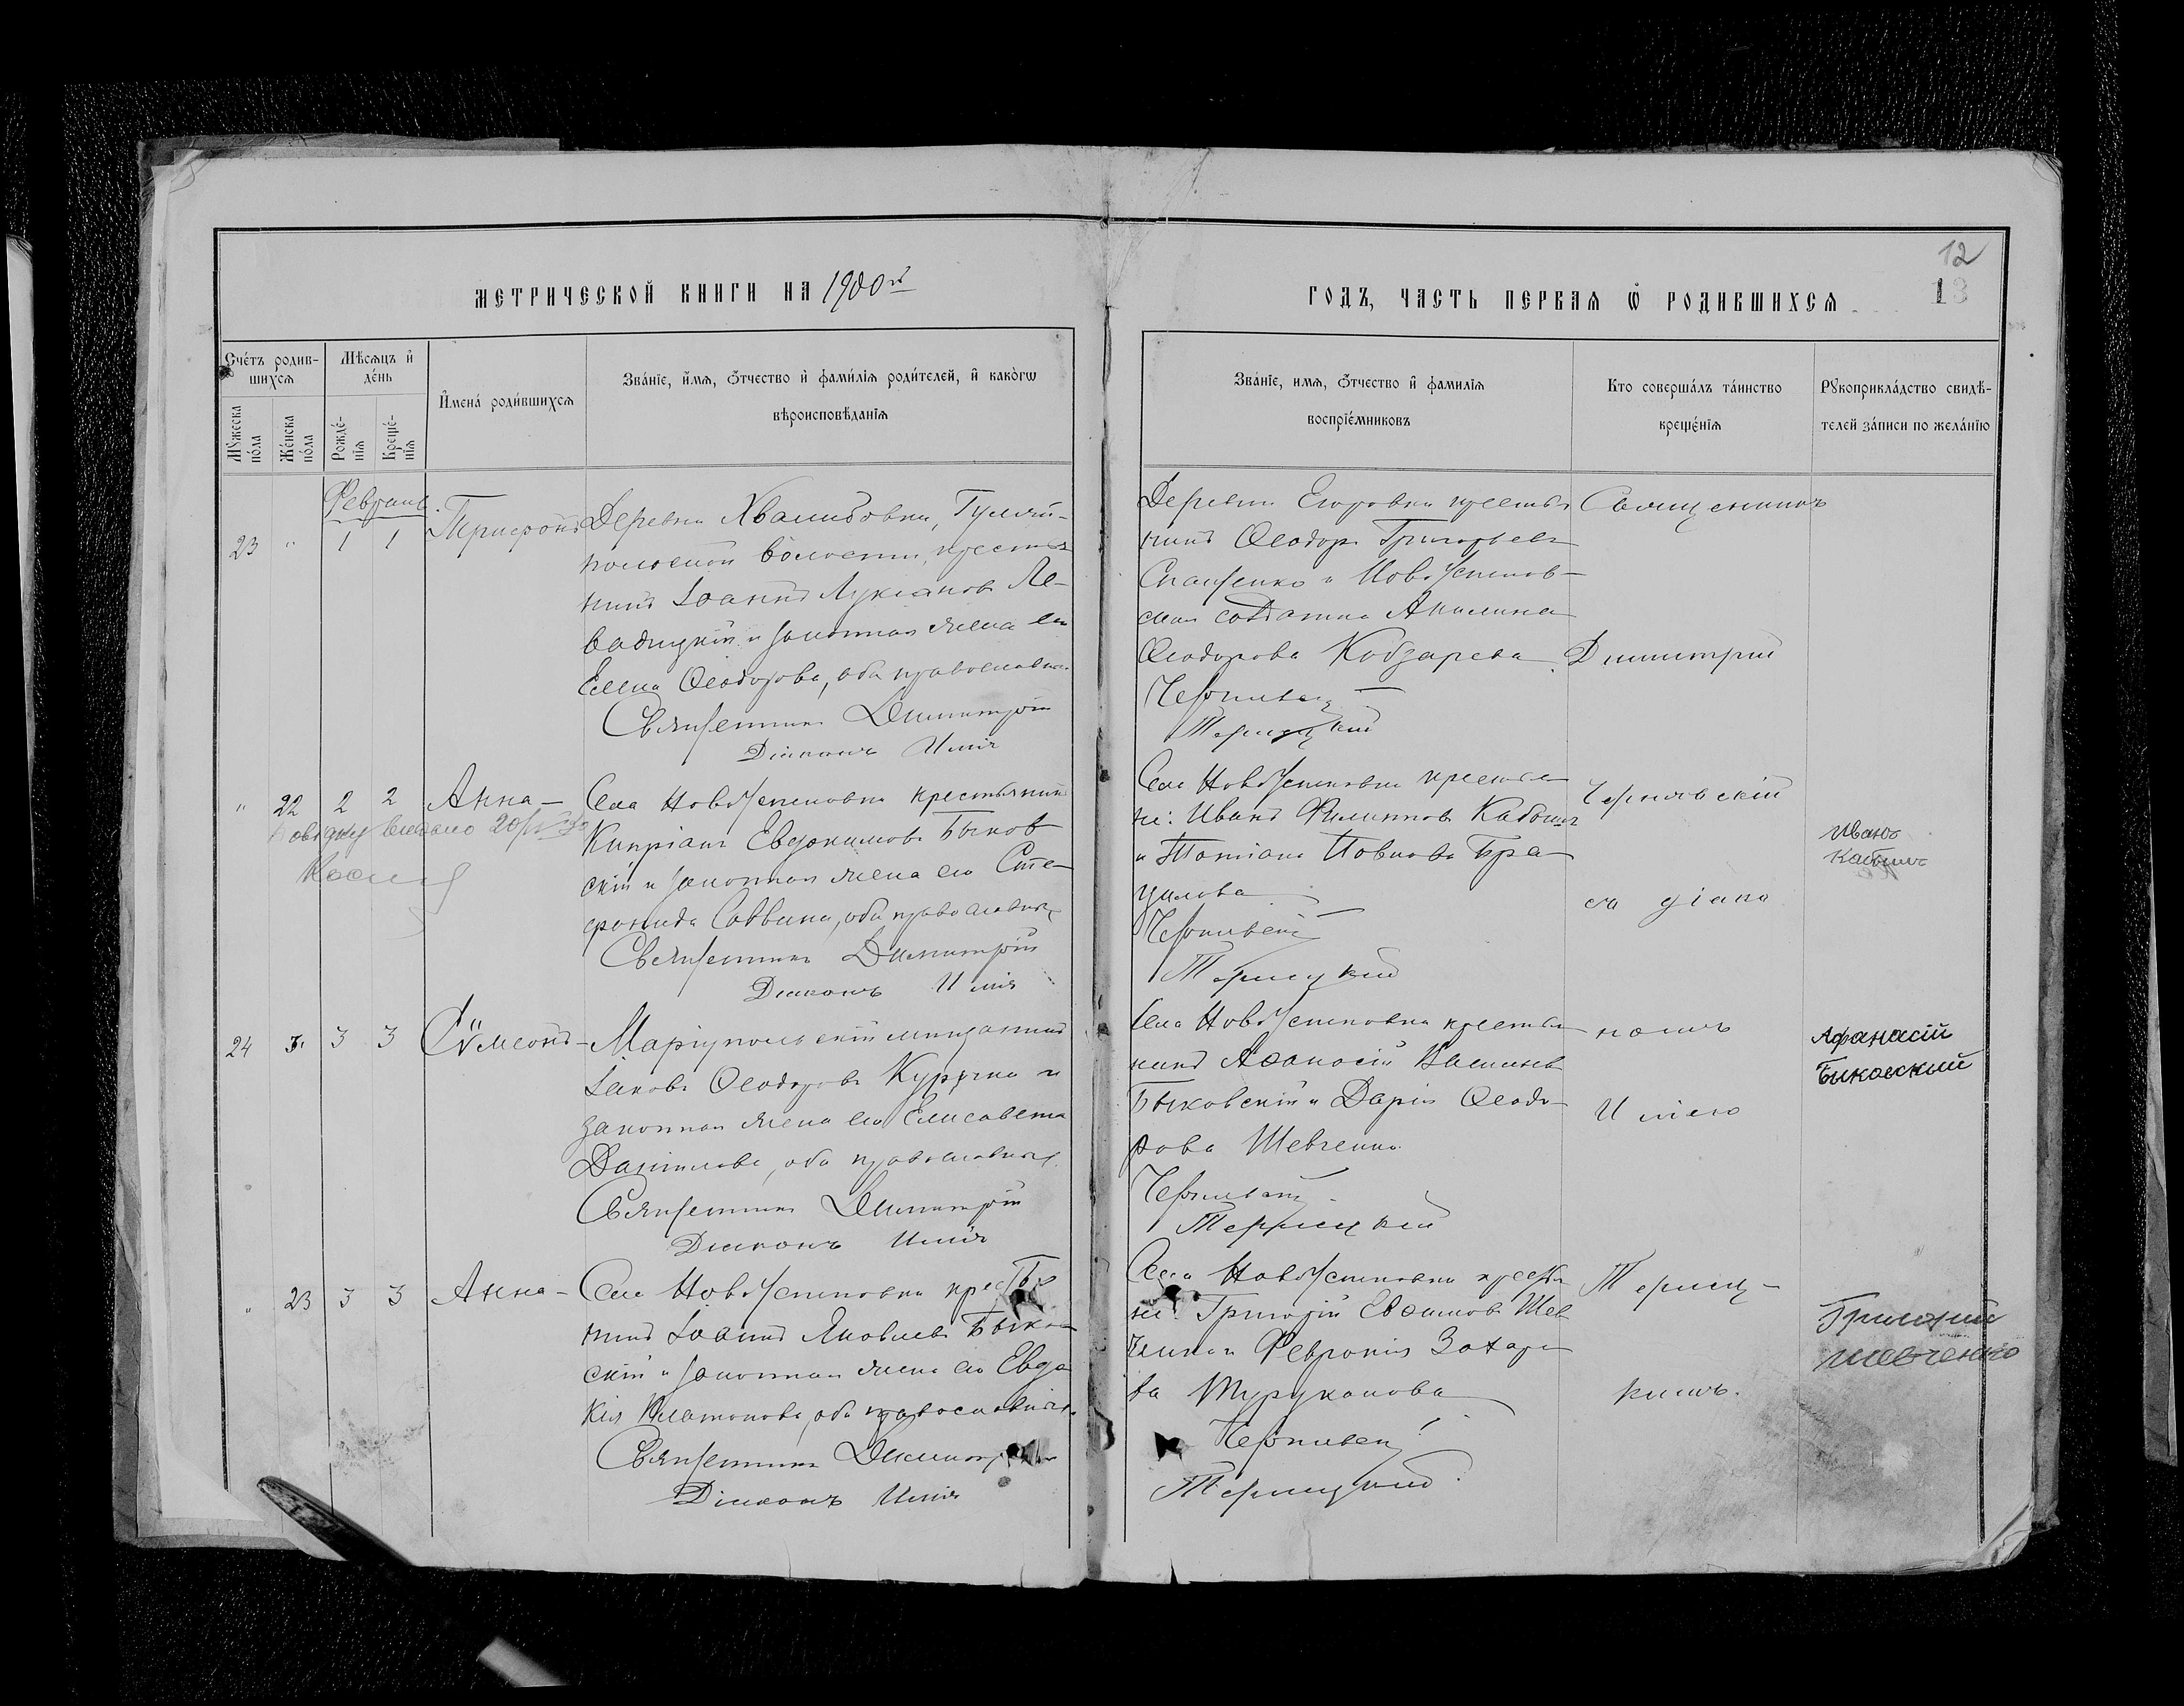 12
13
МЕТРИЧЕСКОЙ КНИГИ НА 1900й
ГОДЪ, ЧАСТЬ ПЕРВАЯ Ѿ РОДИВШИХСЯ
Счéтъ родив-
шихся
Мѣсяцъ и҆
дéнь
Мꙋжеска
пóла
Жéнска
пóла
Рождé-
нїя
Крещé-
нїя
И҆менà роди́вшихся
Звáнїе, и҆́мя, Ѻ҆́тчество и҆ фами́лїя роди́телей, и҆ какóгѡ
вѣроисповѣ́данїя
Звáнїе, имя, Ѻ҆́тчество и҆ фамилїя
воспрїéмниковъ
Кто совершáлъ тáинство
крещéнїя
Рꙋкоприклáдство свидѣ́-
телей зáписи по желáнїю
Февраль
23 " 1 1 Трифонъ
Деревни Хвалибовки, Гуляй-
польской волости, крестья
нинъ Іоаннъ Лукіановъ Ле-
вадицкій и законная жена его
Елена Ѳеодорова, оба православные
Священникъ Димитрій
Діаконъ Илія
Деревни Егоровки крестья
нинъ Ѳеодоръ Григорьевъ
и НовоУспенов-
ская солдатка Акилина
Ѳеодорова Кобзарева
Чернявскій
Терлецкій
Священникъ
Димитрій
" 22 2 2 Анна
Села НовоУспеновки крестьянинъ
Кипріанъ Евдокимовъ Быков
скій и законная жена его Сте-
фанида Саввина, оба православные
Священникъ Димитрій
Діаконъ Илія
Села НовоУспеновки крестья
не: Иванъ Филипповъ Кабышъ
и Татіана Павлова Бра-
гилова
Чернявскій
Терлецкій
Чернявскій
съ діако
Иванъ
Кабышъ
24 " 3 3 Сѵмеонъ
Маріупольскій мѣщанинъ
Іаковъ Ѳеодоровъ Курочка и
законная жена его Елисавета
Даніилова, оба православные
Священникъ Димитрій
Діаконъ Илія
Села НовоУспеновки крестья
нинъ Аѳанасій Васильевъ
Быковскій и Дарія Ѳеодо-
рова Шевченко
Чернявскій
Терлецкій
номъ
Иліею
Афанасій
Биковский
" 23 3 3 Анна
Села НовоУспеновки крестья
нинъ Іоаннъ Яковлевъ Быков
скій и законная жена его Евдо
кія Платонова, оба православные
Священникъ Димитрій
Діаконъ Илія
Села НовоУспеновки крестья
не: Григорій Евѳимовъ Шев
ченко и Февронія Захаро
ва Турукалова
Чернявскій
Терлецкий
Терлец-
кимъ.
Григорий
шевченко